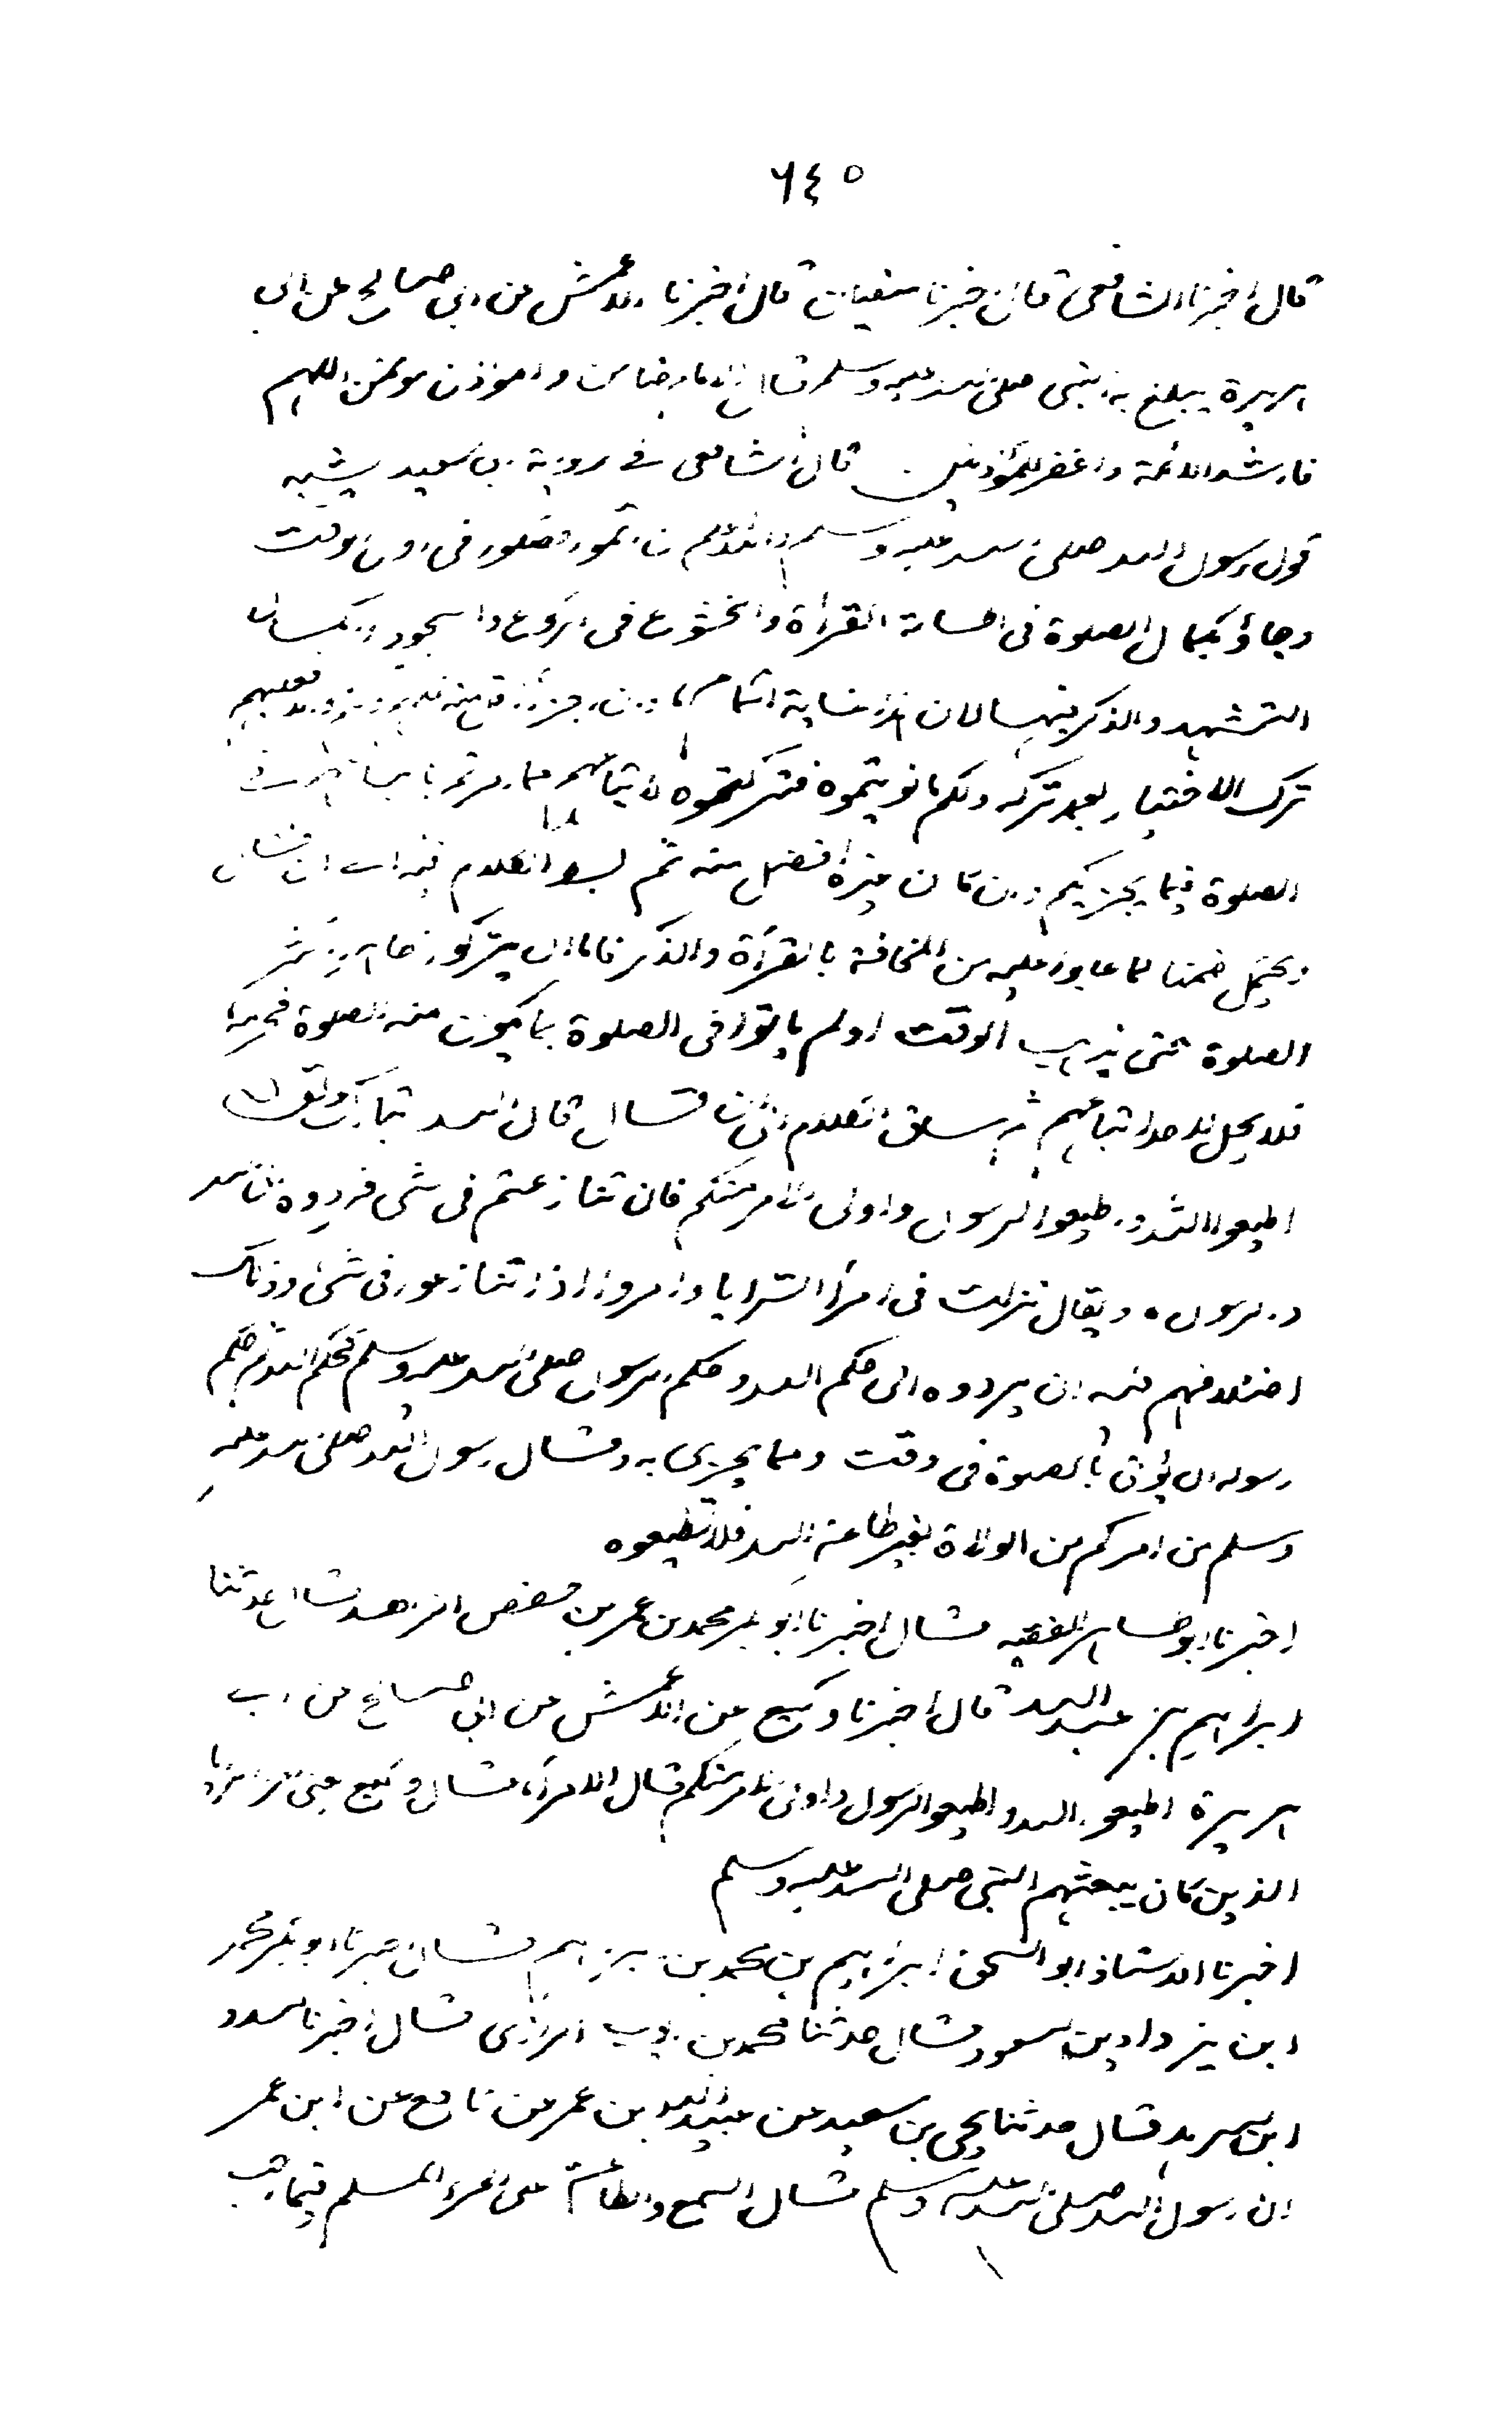 ٦٤٥
قال اخبرنا الشافعى قال اخبرنا سفيان قال اخبرنا الاعمش عن ابى صالح عن ابى
هريرة يبلغ به النبى صلى الله عليه وسلم قال الامام ضامن والموذن موتمن اللهم
فارشد الائمة واغفر للمؤذنين قال الشافعى فى رواية ابى سعيد يشبه
قول رسول الله صلى الله عليه وسلم والله اعلم ان اتموا فصلوا فى اول الوقت
وجاؤ بكمال الصلوة فى اطالة القراة والخشوع فى الركوع والسجود واكمال
التشهد والذكر فيها لان هذا غاية التمام وان اجزأ اقل منه
ترك الاختيار بعمد تركه ولكم ما نويتموه فتركتموه لاتباعهم بما امرتم باتباعهم فى
الصلوة فيما يجزيكم وان كان غيره افضل منه ثم بسط الكلام فيه الى ان قال
ويحتمل ضمنا لما غابوا عليه من المخافتة بالقرآة والذكر فاما ان يتركوا ظاهرا اكثر
الصلوة حتى يذهب الوقت او لم ياتوا فى الصلوة بما يكون منه الصلوة مجزية
فلا يحل لاحد اتباعهم ثم ساق الكلام الى ان قال قال الله تبارك وتعالى
اطيعوا الله واطيعوا الرسول واولى الامر منكم فان تنازعتم فى شى فردوه الى الله
والرسول ويقال نزلت فى امرآ السرايا وامروا اذا تنازعوا فى شئ وذلك
اختلافهم فيه ان يردوه الى حكم الله وحكم الرسول صلى الله عليه وسلم فحكم الله ثم حكم
رسوله ان يؤتى بالصلوة فى وقت وبما يجزى به وقال رسول الله صلى الله عليه
وسلم من امركم من الولاة بغير طاعة الله فلا تطيعوه
اخبرنا ابو طاهر الفقيه قال اخبرنا ابو بكر محمد بن عمر بن حفص الزاهد قال حدثنا
ابراهيم بن عبد الله قال اخبرنا وكيع عن الاعمش عن ابى صالح عن ابى
هريرة اطيعوا الله واطيعوا الرسول واولى الامر منكم قال الامرآء قال وكيع يعنى امراء السرايا
الذين كان يبعثهم النبى صلى الله عليه وسلم
اخبرنا الاستاذ ابو اسحق ابراهيم بن محمد بن ابراهيم قال اخبرنا ابو بكر محمد
ابن يزداد بن مسعود قال حدثنا محمد بن ايوب الرازى قال اخبرنا مسدد
ابن مسرهد قال حدثنا يحيى بن سعيد عن عبيد الله بن عمر عن نافع عن ابن عمر
ان رسول الله صلى الله عليه وسلم قال السمع والطاعة على المرء المسلم فيما احب